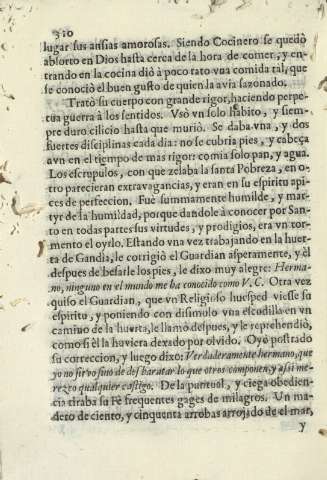 310
lugar sus ansias amorosas. Siendo Cocinero se quedò
absorto en Dios hasta cerca de la hora de comer, y en-
trando en la cocina diò à poco rato vna comida tal, que
se conociò el buen gusto de quien la avia sazonado.
Tratò su cuerpo con grande rigor, haciendo perpe-
tua guerra à los sentidos. Vsò vn solo Habito, y siem-
pre duro cilicio hasta que muriò. Se daba vna, y dos
fuertes disciplinas cada dia: no se cubria pies, y cabeça
avn en el tiempo de mas rigor: comia solo pan, y agua.
Los escrupulos, con que zelaba la santa Pobreza, en o-
tro parecieran extravagancias, y eran en su espiritu api-
ces de perfeccion. Fuè summamente humilde, y mar-
tyr de la humildad, porque dandole à conocer por San-
to en todas partes sus virtudes, y prodigios, era vn tor-
mento el oyrlo. Estando vna vez trabajando en la huer-
ta de Gandìa, le corrigiò el Guardian asperamente, y èl
despues de besarle los pies, le dixo muy alegre: Herma-
no, ninguno en el mundo me ha conocido como V. C. Otra vez
quiso el Guardian, que vn Religioso huesped viesse su
espiritu, y poniendo con disimulo vna escudilla en vn
camino de la huerta, le llamò despues, y le reprehendiò,
como si èl la huviera dexado por olvido. Oyò postrado
su correccion, y luego dixo: Verdaderamente hermano, que
yo no sirvo sino de desbaratar lo que otros componen, y assi me-
rezco qualquier castigo. De la puntual, y ciega obedien-
cia tiraba su Fè frequentes gages de milagros. Un ma-
dero de ciento, y cinquenta arrobas arrojado de el mar,
y